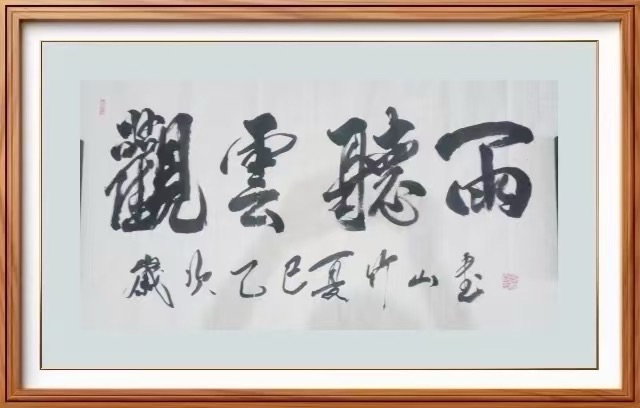 觀雲聽雨
歲次乙巳夏竹山書